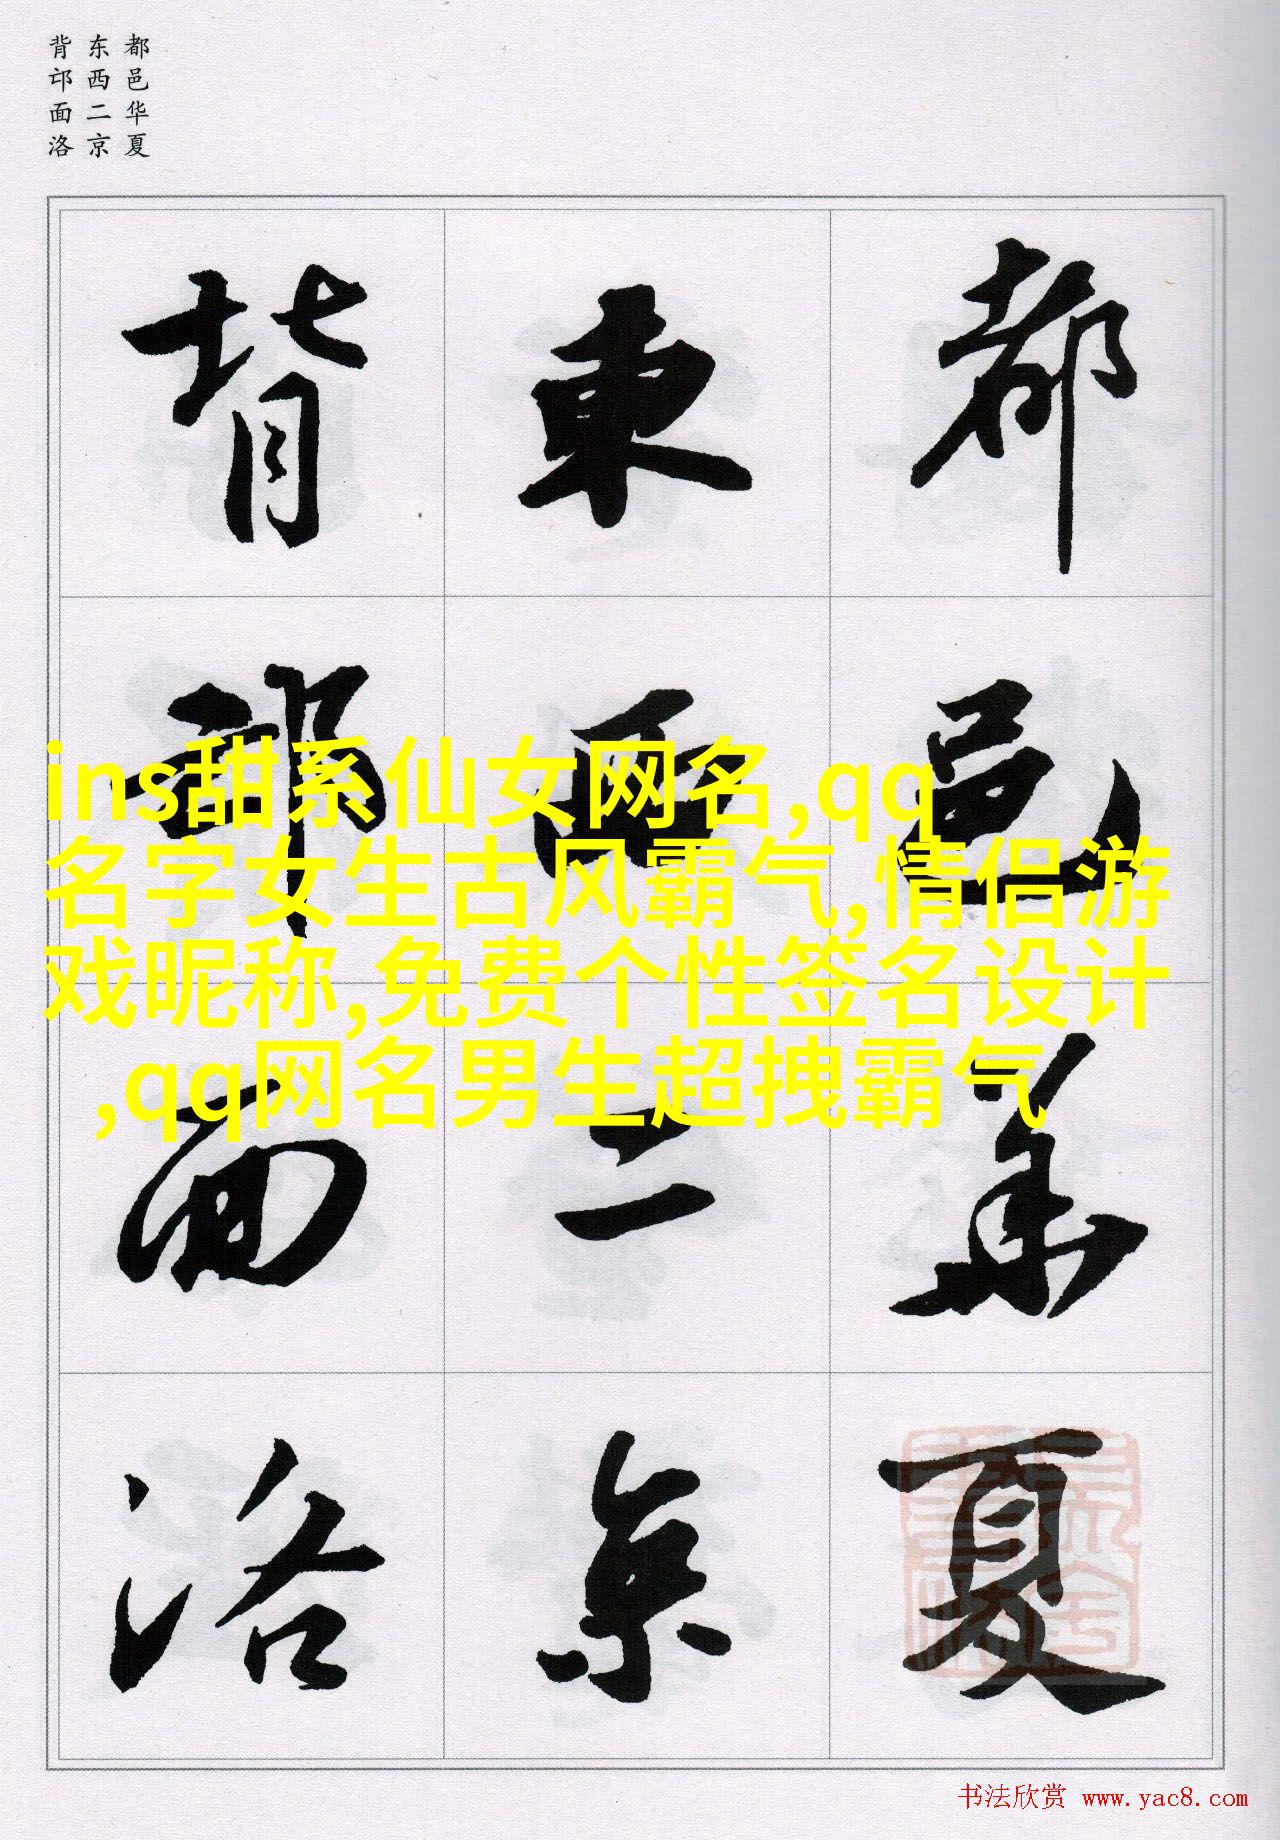 都邑华夏
东西二京
背邙面洛
都邑華夏
東西二京
背邙面洛
ins甜系仙女网名,qq
名字女生古风霸气,情侣游
戏昵称,免费个性签名设计
,qq网名男生超拽霸气
书法欣赏 www.yac8.com